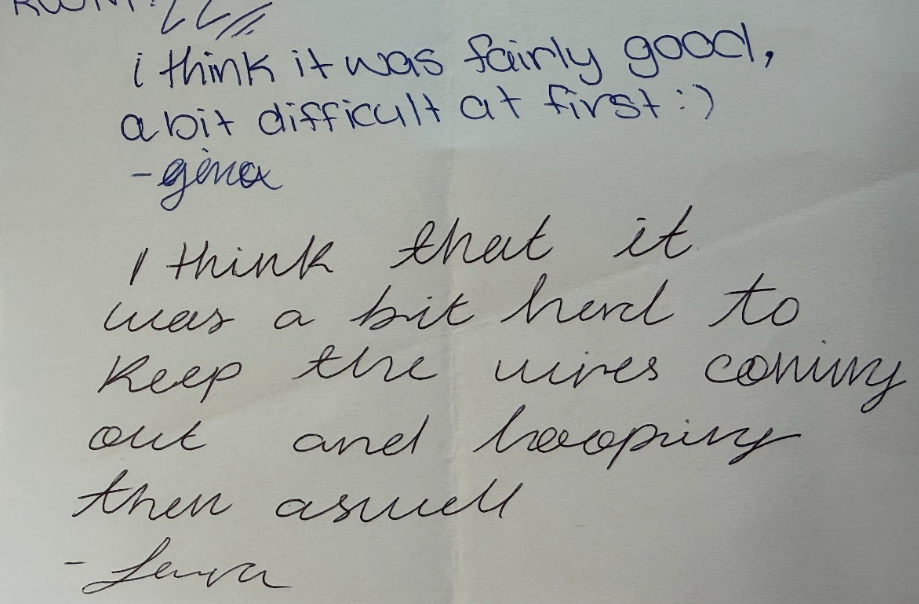 i think it was fairly good,
a bit difficult at first :)
-gina
I think that it
was a bit hard to
keep the wires coming
out and hooping
then aswell
-